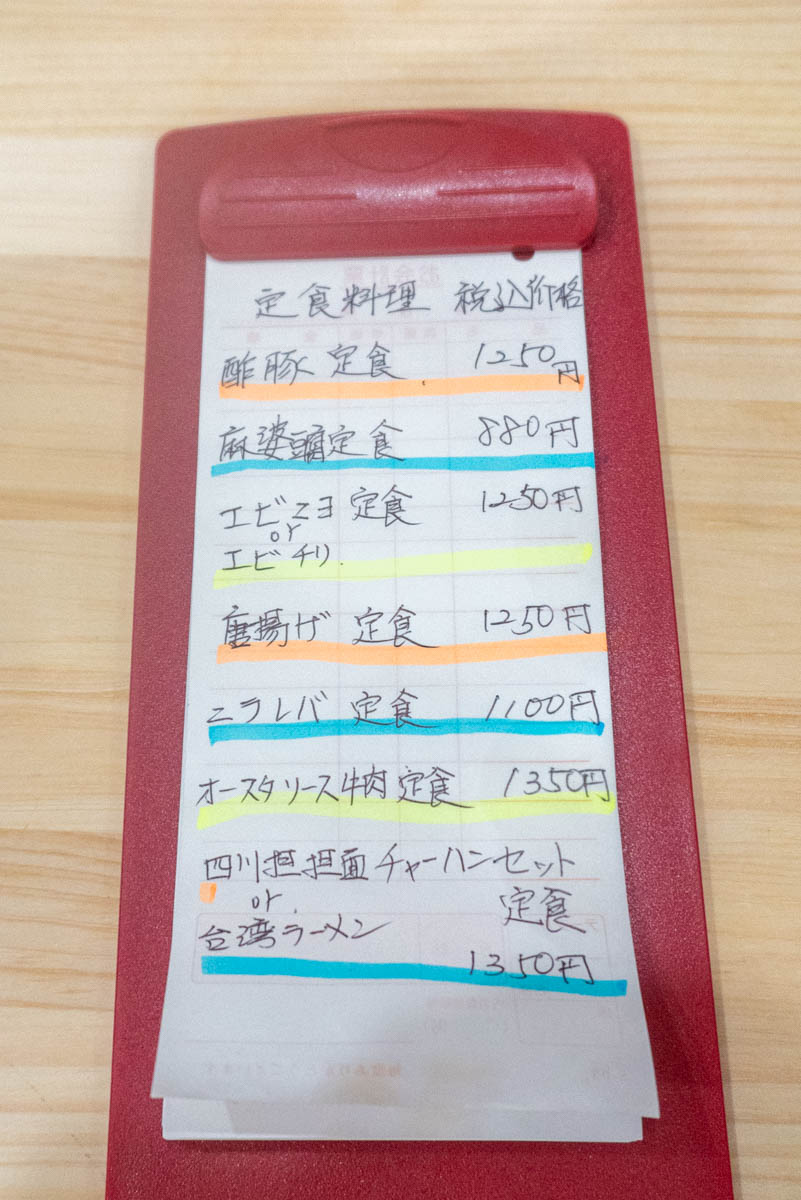 定食料理 税込价格
酢豚 定食 1250円
麻婆豆腐定食 880円
エビマヨ 定食 1250円
or
エビチリ
唐揚げ 定食 1250円
ニラレバ 定食 1100円
オースタソース牛肉定食 1350円
四川担担面チャーハンセット
or 定食
台湾ラーメン
1350円